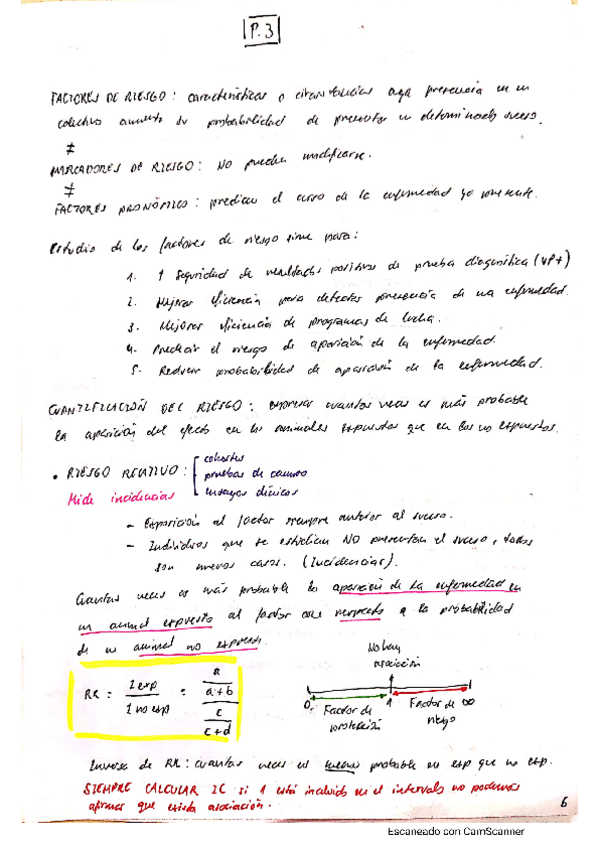 P.3
FACTORES DE RIESGO: características o circunstancias cuya presencia en un
colectivo aumenta su probabilidad de presentar un determinado suceso.
≠
MARCADORES DE RIESGO: NO pueden modificarse.
≠
FACTORES PRONÓSTICO: predicen el curso de la enfermedad ya presente.
Estudio de los factores de riesgo sirve para:
1. ↑ Seguridad de resultados positivos de prueba diagnóstica (VP+)
2. Mejorar eficiencia para detectar presencia de una enfermedad.
3. Mejorar eficiencia de programas de lucha.
4. Predecir el riesgo de aparición de la enfermedad.
5. Reducir probabilidad de aparición de la enfermedad.
CUANTIFICACIÓN DEL RIESGO: expresar cuantas veces es más probable
la aparición del efecto en los animales expuestos que en los no expuestos.
• RIESGO RELATIVO: cohortes
pruebas de campo
Mide incidencias ensayos clínicos
- Exposición al factor siempre anterior al suceso.
- Individuos que se estudian NO presentan el suceso, todos
son nuevos casos. (Incidencias).
Cuantas veces es más probable la aparición de la enfermedad en
un animal expuesto al factor con respecto a la probabilidad
de un animal no expuesto.
No hay
asociación
RR = I exp / I no exp = a / a+b / c / c+d
0 1 ∞
Factor de protección
Factor de riesgo
Inverso de RR: cuantas veces es menos probable en exp que no exp.
SIEMPRE CALCULAR IC si 1 está incluido en el intervalo no podemos
afirmar que exista asociación.
6
Escaneado con CamScanner